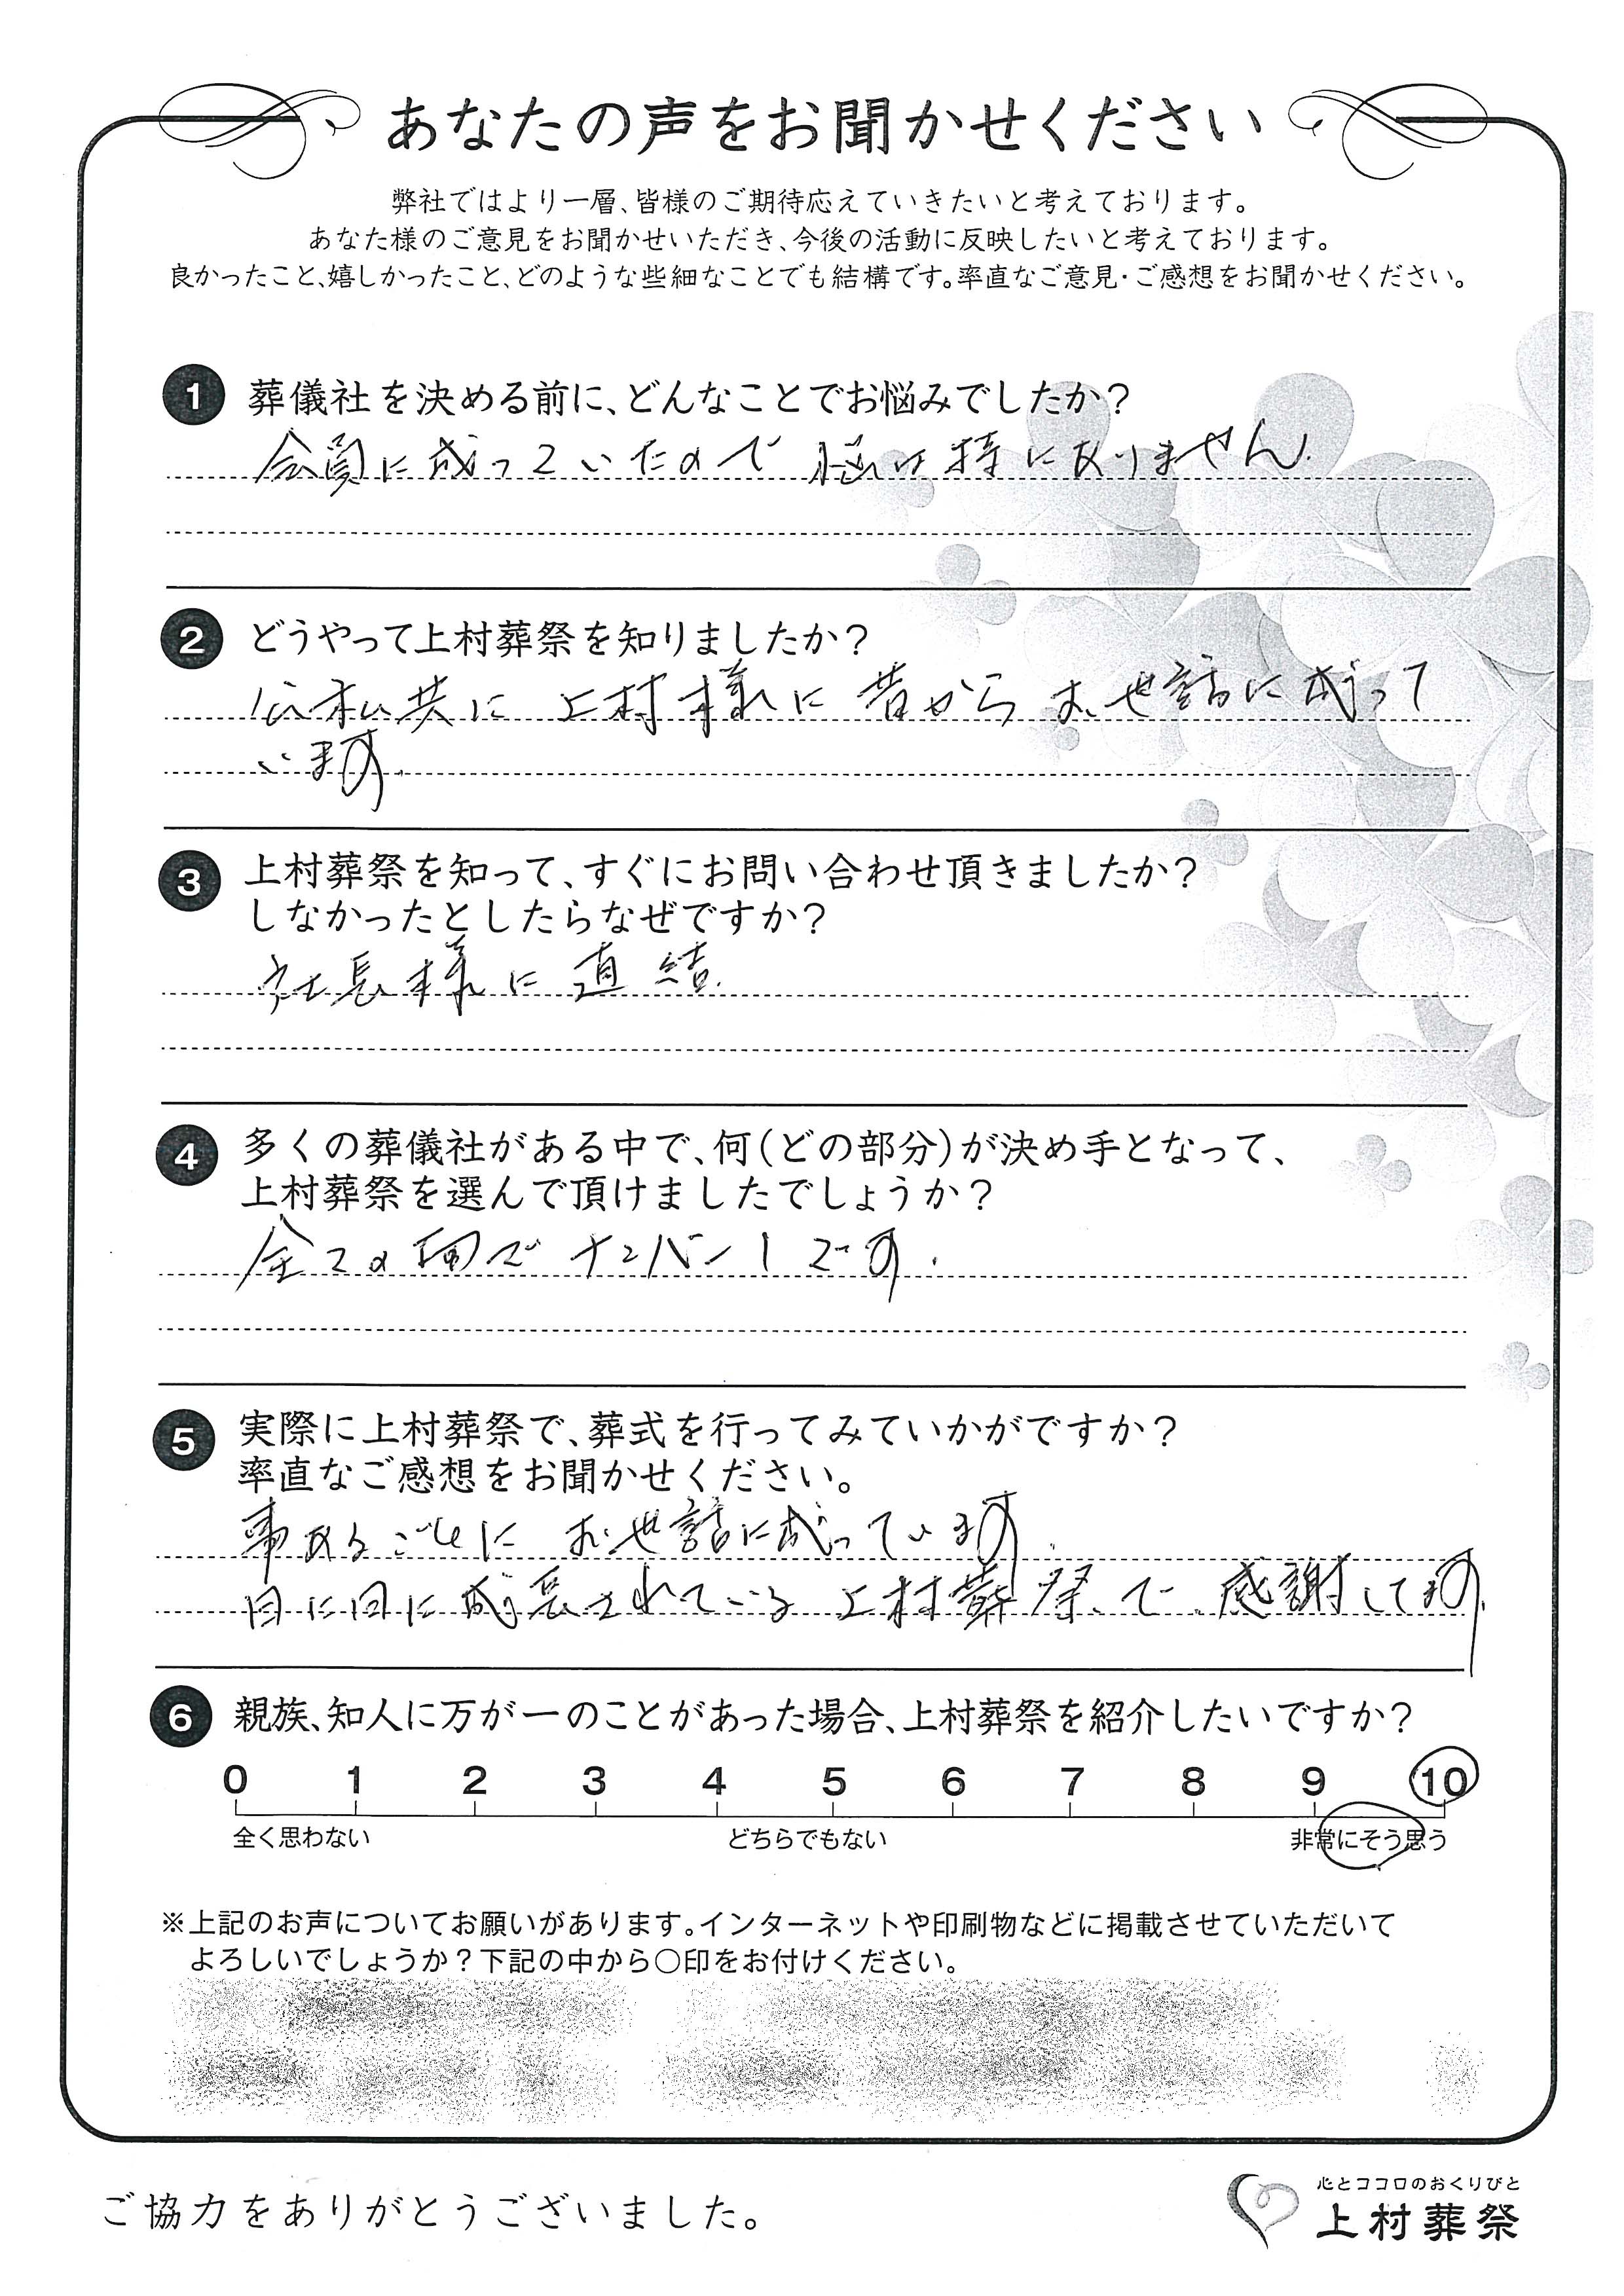 あなたの声をお聞かせください
弊社ではより一層、皆様のご期待応えていきたいと考えております。
あなた様のご意見をお聞かせいただき、今後の活動に反映したいと考えております。
良かったこと、嬉しかったこと、どのような些細なことでも結構です。率直なご意見・ご感想をお聞かせください。
1 葬儀社を決める前に、どんなことでお悩みでしたか?
会員に成っていたので 悩は特に有りません.
2 どうやって上村葬祭を知りましたか?
公私共に 上村様に 昔から お世話に成って
います.
3 上村葬祭を知って、すぐにお問い合わせ頂きましたか?
しなかったとしたらなぜですか?
社長様に 直結.
4 多くの葬儀社がある中で、何(どの部分)が決め手となって、
上村葬祭を選んで頂けましたでしょうか?
全ての面で ナンバー1です.
5 実際に上村葬祭で、葬式を行ってみていかがですか?
率直なご感想をお聞かせください。
事あるごとに お世話に成っています.
日に日に成長されている 上村葬祭、で、感謝してます.
6 親族、知人に万が一のことがあった場合、上村葬祭を紹介したいですか?
0 1 2 3 4 5 6 7 8 9 10
全く思わない どちらでもない 非常にそう思う
※上記のお声についてお願いがあります。インターネットや印刷物などに掲載させていただいて
よろしいでしょうか?下記の中から○印をお付けください。
ご協力をありがとうございました。
心とココロのおくりびと
上村葬祭